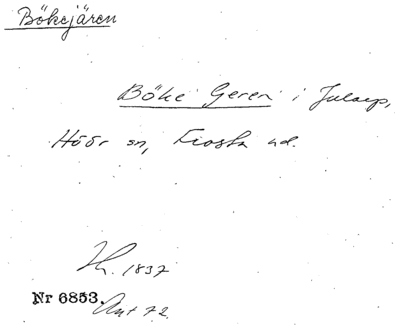 Bökejären
Böke Geren i Jularp,
Höör sn, Frosta hd.
Th. 1837
Nr 6853. Ant 72.